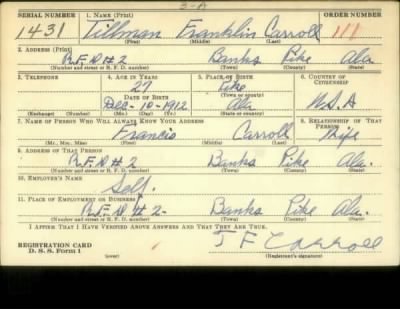 3-A
SERIAL NUMBER 1. NAME (Print) ORDER NUMBER
1431 Tillman Franklin Carroll 111
(First) (Middle) (Last)
2. ADDRESS (Print)
R.F.D #2 Banks Pike Ala.
(Number and street or R. F. D. number) (Town) (County) (State)
3. TELEPHONE 4. AGE IN YEARS 5. PLACE OF BIRTH 6. COUNTRY OF CITIZENSHIP
27 Pike
(Town or county)
DATE OF BIRTH
Dec-10-1912 Ala U.S.A
(Exchange) (Number) (Mo.) (Day) (Yr.) (State or country)
7. NAME OF PERSON WHO WILL ALWAYS KNOW YOUR ADDRESS 8. RELATIONSHIP OF THAT PERSON
Francis Carroll Wife
(Mr., Mrs., Miss) (First) (Middle) (Last)
9. ADDRESS OF THAT PERSON
R.F.D #2 Banks Pike Ala.
(Number and street or R. F. D. number) (Town) (County) (State)
10. EMPLOYER'S NAME
Self.
11. PLACE OF EMPLOYMENT OR BUSINESS
R.F.D #2- Banks Pike Ala.
(Number and street or R. F. D. number) (Town) (County) (State)
I AFFIRM THAT I HAVE VERIFIED ABOVE ANSWERS AND THAT THEY ARE TRUE.
REGISTRATION CARD
D. S. S. Form 1
J F Carroll
(over) (Registrant's signature)